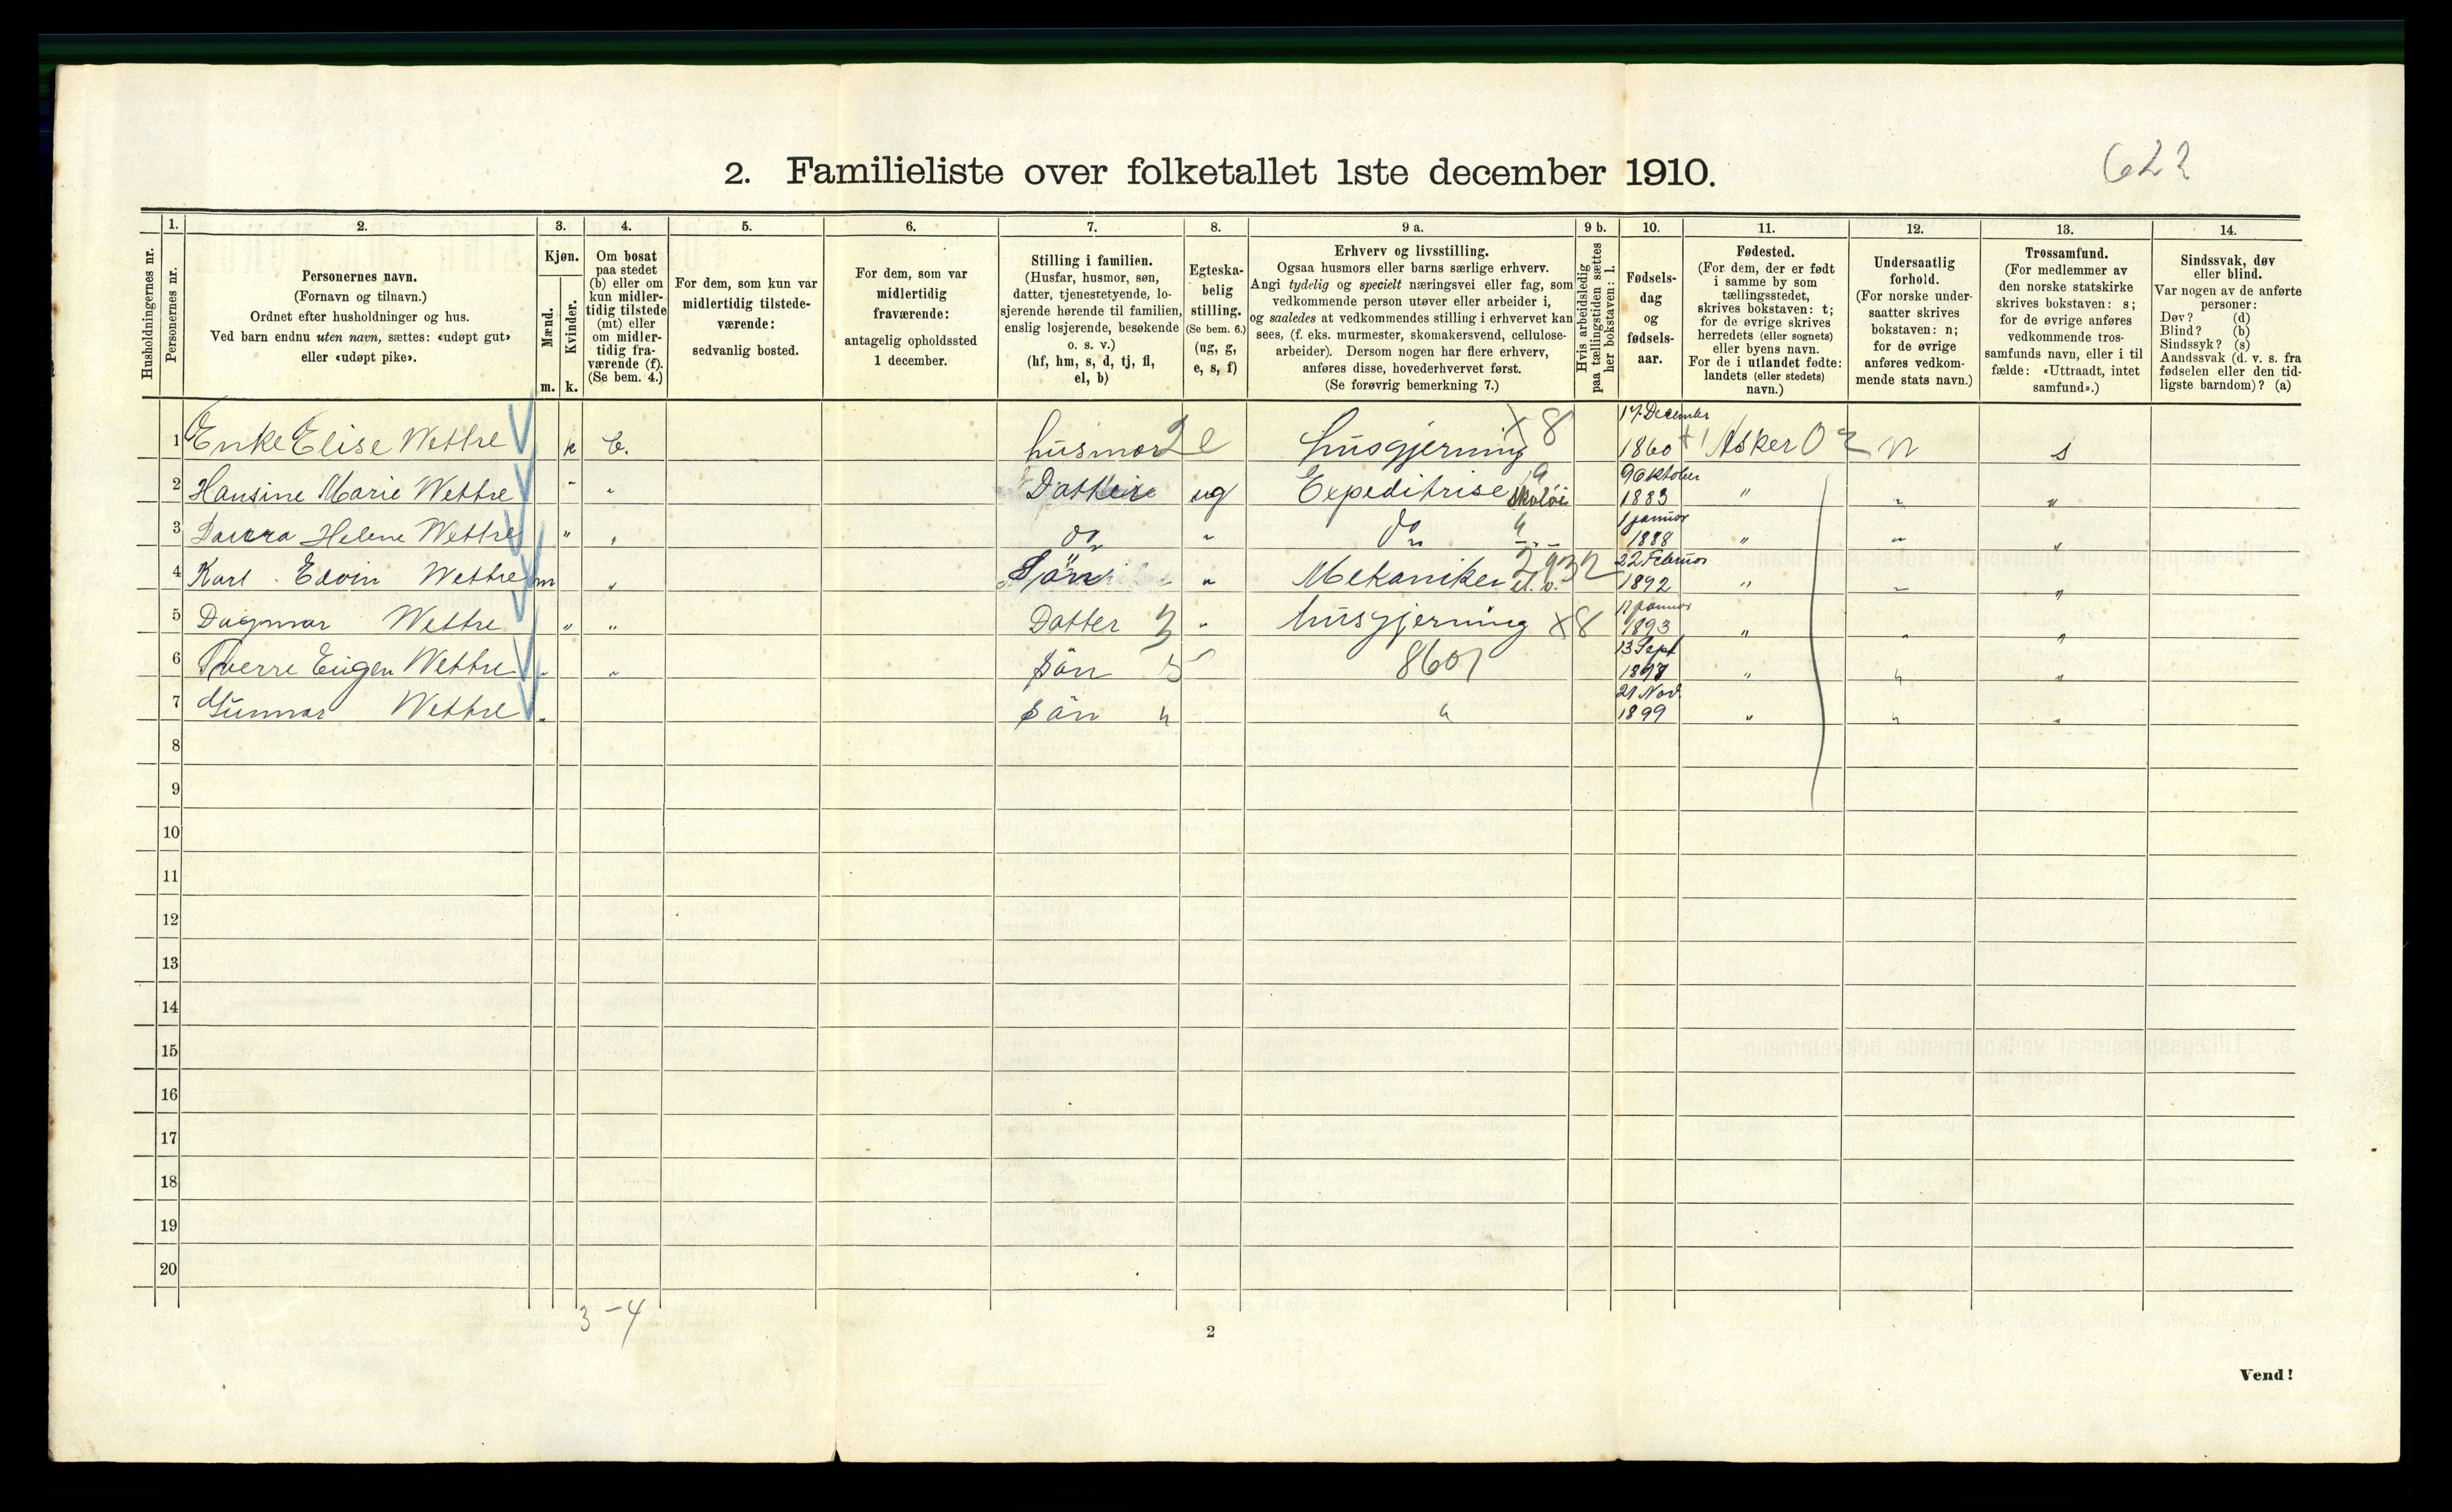 2. Familieliste over folketallet 1ste december 1910.
622
Husholdningernes nr.
1. Personernes nr.
2. Personernes navn.
(Fornavn og tilnavn.)
Ordnet efter husholdninger og hus.
Ved barn endnu uten navn, sættes: «udøpt gut»
eller «udøpt pike».
3. Kjøn.
Mænd. m.
Kvinder. k.
4. Om bosat
paa stedet
(b) eller om
kun midler-
tidig tilstede
(mt) eller
om midler-
tidig fra-
værende (f).
(Se bem. 4.)
5. For dem, som kun var
midlertidig tilstede-
værende:
sedvanlig bosted.
6. For dem, som var
midlertidig
fraværende:
antagelig opholdssted
1 december.
7. Stilling i familien.
(Husfar, husmor, søn,
datter, tjenestetyende, lo-
sjerende hørende til familien,
enslig losjerende, besøkende
o. s. v.)
(hf, hm, s, d, tj, fl,
el, b)
8. Egteska-
belig
stilling.
(Se bem. 6.)
(ug, g,
e, s, f)
9 a. Erhverv og livsstilling.
Ogsaa husmors eller barns særlige erhverv.
Angi tydelig og specielt næringsvei eller fag, som
vedkommende person utøver eller arbeider i,
og saaledes at vedkommendes stilling i erhvervet kan
sees, (f. eks. murmester, skomakersvend, cellulose-
arbeider). Dersom nogen har flere erhverv,
anføres disse, hovederhvervet først.
(Se forøvrig bemerkning 7.)
9 b. Hvis arbeidsledig
paa tællingstiden sættes
her bokstaven: l.
10. Fødsels-
dag
og
fødsels-
aar.
11. Fødested.
(For dem, der er født
i samme by som
tællingsstedet,
skrives bokstaven: t;
for de øvrige skrives
herredets (eller sognets)
eller byens navn.
For de i utlandet fødte:
landets (eller stedets)
navn.)
12. Undersaatlig
forhold.
(For norske under-
saatter skrives
bokstaven: n;
for de øvrige
anføres vedkom-
mende stats navn.)
13. Trossamfund.
(For medlemmer av
den norske statskirke
skrives bokstaven: s;
for de øvrige anføres
vedkommende tros-
samfunds navn, eller i til
fælde: «Uttraadt, intet
samfund».)
14. Sindssvak, døv
eller blind.
Var nogen av de anførte
personer:
Døv? (d)
Blind? (b)
Sindssyk? (s)
Aandssvak (d. v. s. fra
fødselen eller den tid-
ligste barndom)? (a)
1 Enke Elise Wettre k b. husmor 2 e husgjerning x 8 17 December 1860 Asker 02 n s
2 Hansine Marie Wettre " " Datter ug Expeditrise skotøi 9 Oktober 1883 " " "
3 Helene Wettre " " do " do " 1 januar 1888 " " "
4 Karl Edvin Wettre m " Sön " Mekaniker el. v. 22 Februar 1892 " " "
5 Dagmar Wettre " " Datter 3 " husgjerning x8 17 januar 1893 " " "
6 Sverre Eugen Wettre " " sön 5 8601 13 Sept " " "
7 Gunnar Wettre " sön " " 21 Nov. 1899 " " "
8
9
10
11
12
13
14
15
16
17
18
19
20
3 – 4
2
Vend!